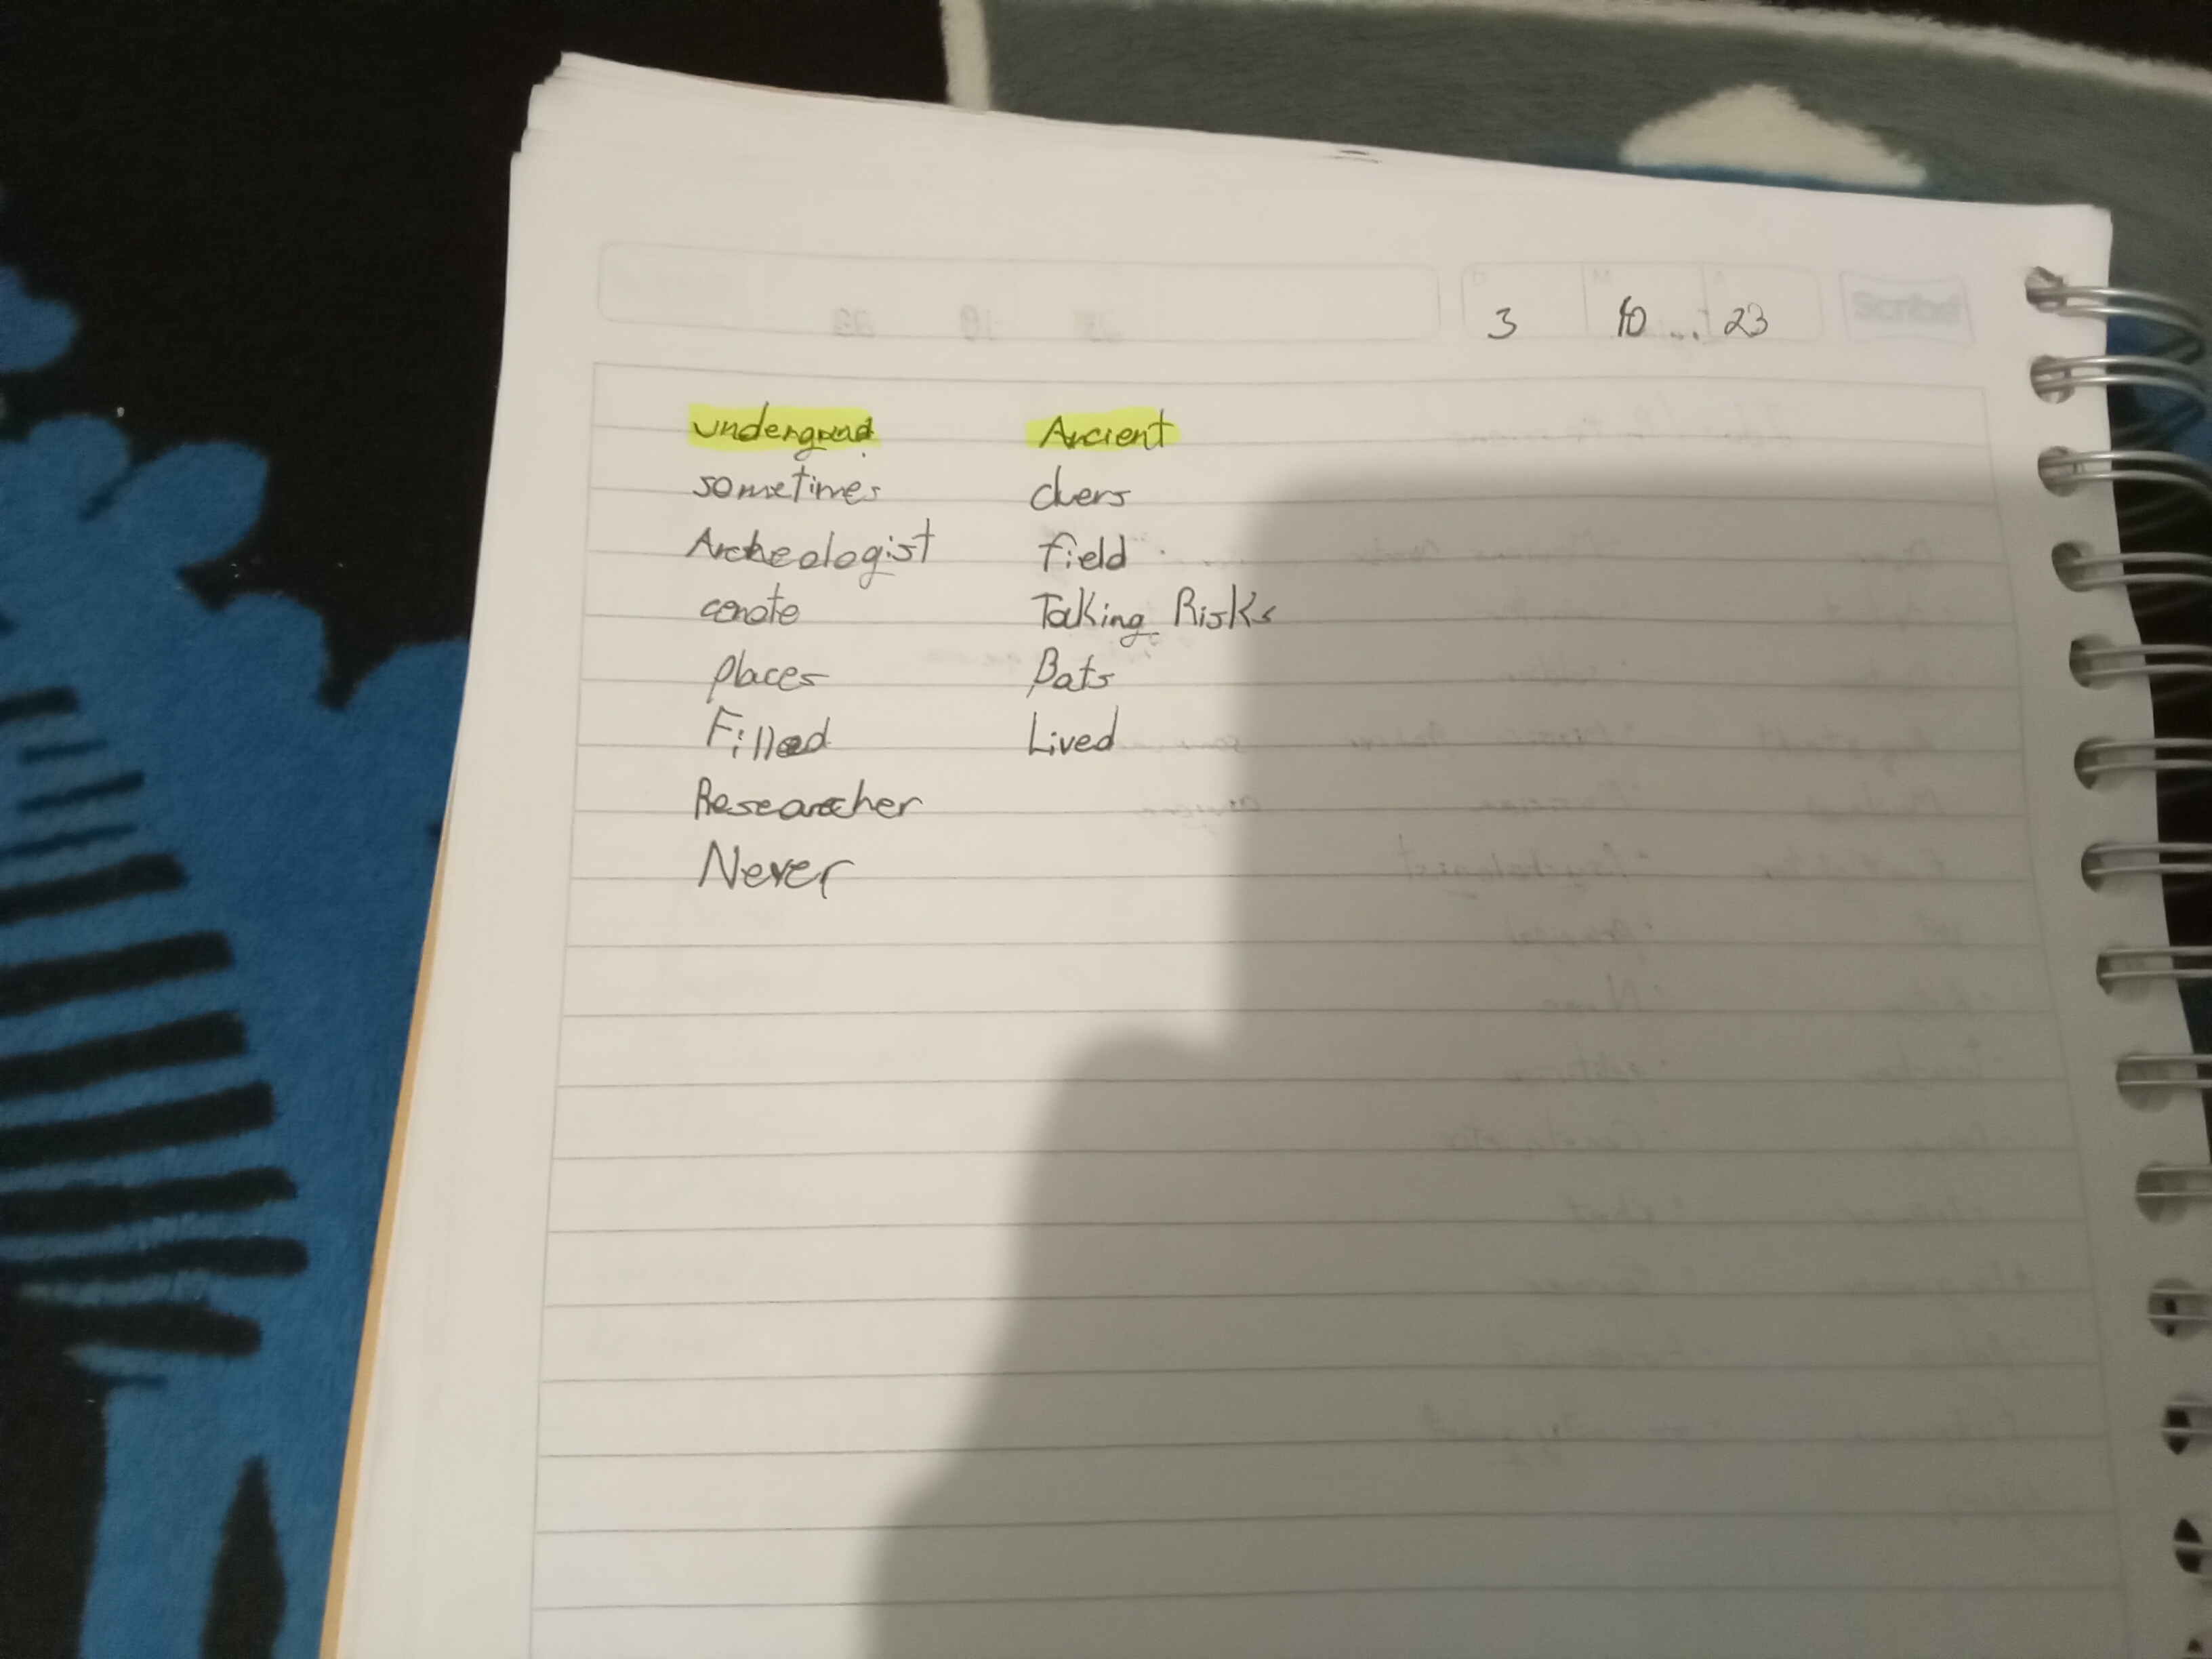 D M A
3 10 23
Scribe
undergrond Ancient
sometimes
Archeologist field
cenote Taking Risks
places Bats
Filled Lived
Researcher
Never